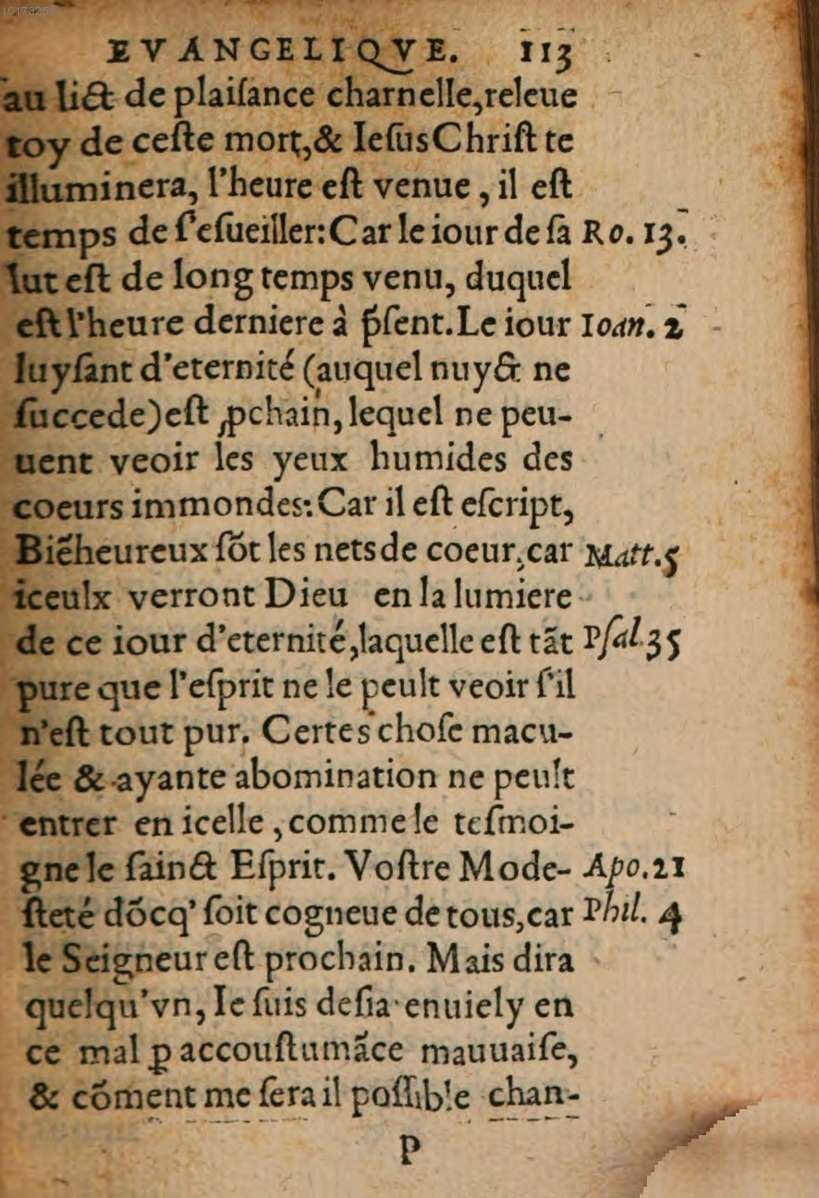 EVANGELIQVE. 113
au lict de plaiſance charnelle,releue
toy de ceſte mort,& IeſusChriſt te
illuminera, l'heure eſt venue, il eſt
temps de ſ'eſueiller:Car le iour de ſa Ro. 13.
lut eſt de long temps venu, duquel
eſt l'heure derniere à p̃ſent.Le iour Ioan. 2
luyſant d'eternité (auquel nuyct ne
ſuccede)eſt ꝓchain, lequel ne peu-
uent veoir les yeux humides des
coeurs immondes:Car il eſt eſcript,
Biẽheureux ſõt les nets de coeur,car Matt.5
iceulx verront Dieu en la lumiere
de ce iour d'eternité,laquelle eſt tãt Pſal.35
pure que l'eſprit ne le peult veoir ſ'il
n'eſt tout pur. Certes choſe macu-
lée & ayante abomination ne peult
entrer en icelle, comme le teſmoi-
gne le ſainct Eſprit. Voſtre Mode- Apo.21
ſteté dõcq' ſoit cogneue de tous,car Phil. 4
le Seigneur eſt prochain. Mais dira
quelqu'vn, Ie ſuis deſia enuiely en
ce mal ꝑ accouſtumãce mauuaiſe,
& cõment me ſera il poſſible chan-
P